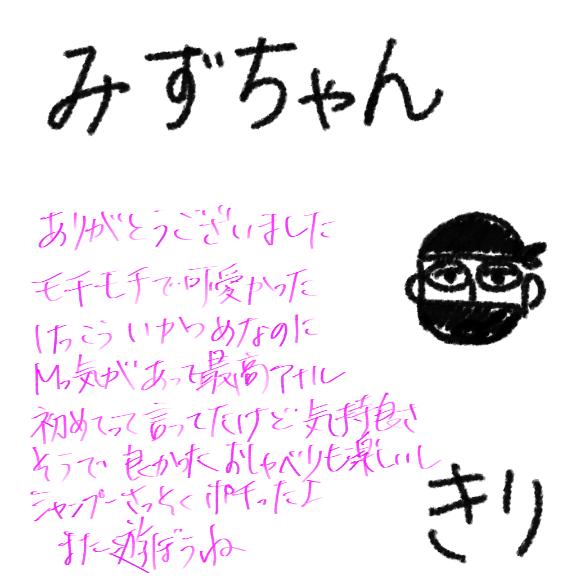 みずちゃん
ありがとうございました
モチモチで可愛かった
けっこういかつめなのに
Mっ気があって最高アナル
初めてって言ってたけど気持良さ
そうで良かったおしゃべりも楽しいし
シャンプーさっそくポチったよ
また遊ぼうね
きり